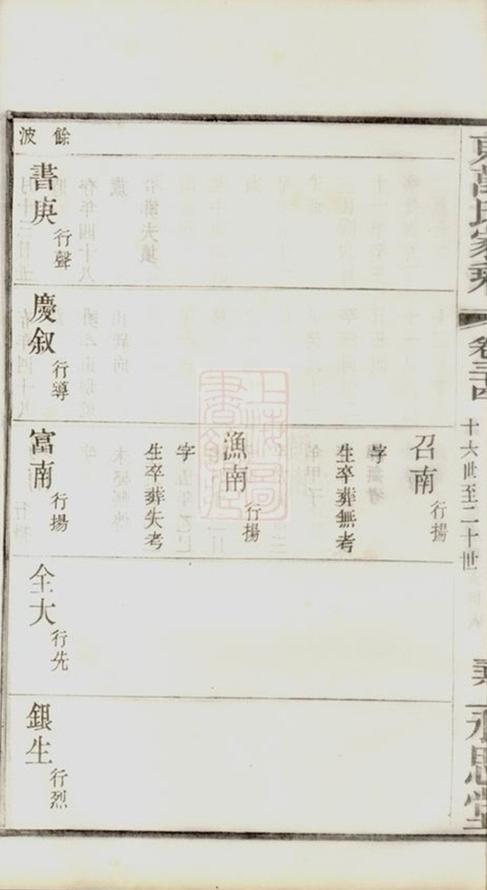 萬氏家乘
卷三十四
十六世至二十世
永思堂
召南
行揚
字
生卒葬無考
漁南
行揚
字
生卒葬失考
餘波
書庚
行聲
慶叙
行導
富南
行揚
全大
行先
銀生
行烈
上海圖書館藏